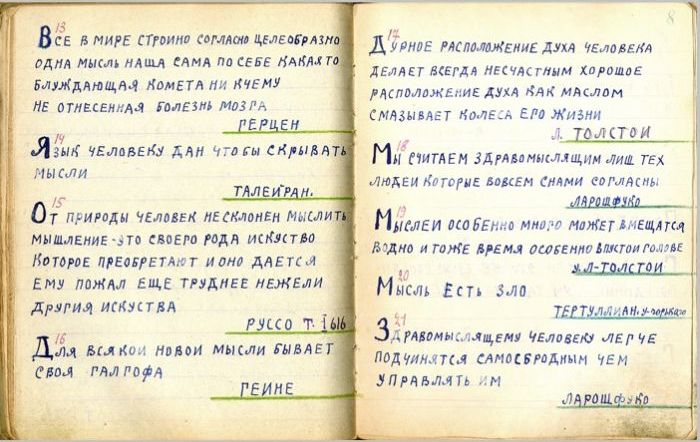 13
ВСЕ В МИРЕ СТРОИНО СОГЛАСНО ЦЕЛЕОБРАЗНО
ОДНА МЫСЛЬ НАША САМА ПО СЕБЕ КАКАЯТО
БЛУЖДАЮЩАЯ КОМЕТА НИ КЧЕМУ
НЕ ОТНЕСЕННАЯ БОЛЕЗНЬ МОЗГА
ГЕРЦЕН
14
ЯЗЫК ЧЕЛОВЕКУ ДАН ЧТО БЫ СКРЫВАТЬ
МЫСЛИ
ТАЛЕЙРАН.
15
ОТ ПРИРОДЫ ЧЕЛОВЕК НЕСКЛОНЕН МЫСЛИТЬ
МЫШЛЕНИЕ-ЭТО СВОЕГО РОДА ИСКУСТВО
КОТОРОЕ ПРЕОБРЕТАЮТ И ОНО ДАЕТСЯ
ЕМУ ПОЖАЛ ЕЩЕ ТРУДНЕЕ НЕЖЕЛИ
ДРУГИЯ ИСКУСТВА
РУССО Т. I 616
16
ДЛЯ ВСЯКОИ НОВОИ МЫСЛИ БЫВАЕТ
СВОЯ ГАЛГОФА
ГЕИНЕ
8
17
ДУРНОЕ РАСПОЛОЖЕНИЕ ДУХА ЧЕЛОВЕКА
ДЕЛАЕТ ВСЕГДА НЕСЧАСТНЫМ ХОРОШОЕ
РАСПОЛОЖЕНИЕ ДУХА КАК МАСЛОМ
СМАЗЫВАЕТ КОЛЕСА ЕГО ЖИЗНИ
Л. ТОЛСТОИ
18
МЫ СЧИТАЕМ ЗДРАВОМЫСЛЯЩИМ ЛИШ ТЕХ
ЛЮДЕИ КОТОРЫЕ ВОВСЕМ СНАМИ СОГЛАСНЫ
ЛАРОШФУКО
19
МЫСЛЕИ ОСОБЕННО МНОГО МОЖЕТ ВМЕЩАТСЯ
ВОДНО И ТОЖЕ ВРЕМЯ ОСОБЕННО ВПУСТОИ ГОЛОВЕ
У.Л-ТОЛСТОИ
20
МЫСЛЬ ЕСТЬ ЗЛО
ТЕРТУЛЛИАН. У-горького
21
ЗДРАВОМЫСЛЯЩЕМУ ЧЕЛОВЕКУ ЛЕГЧЕ
ПОДЧИНЯТСЯ САМОСБРОДНЫМ ЧЕМ
УПРАВЛЯТЬ ИМ
ЛАРОШФУКО